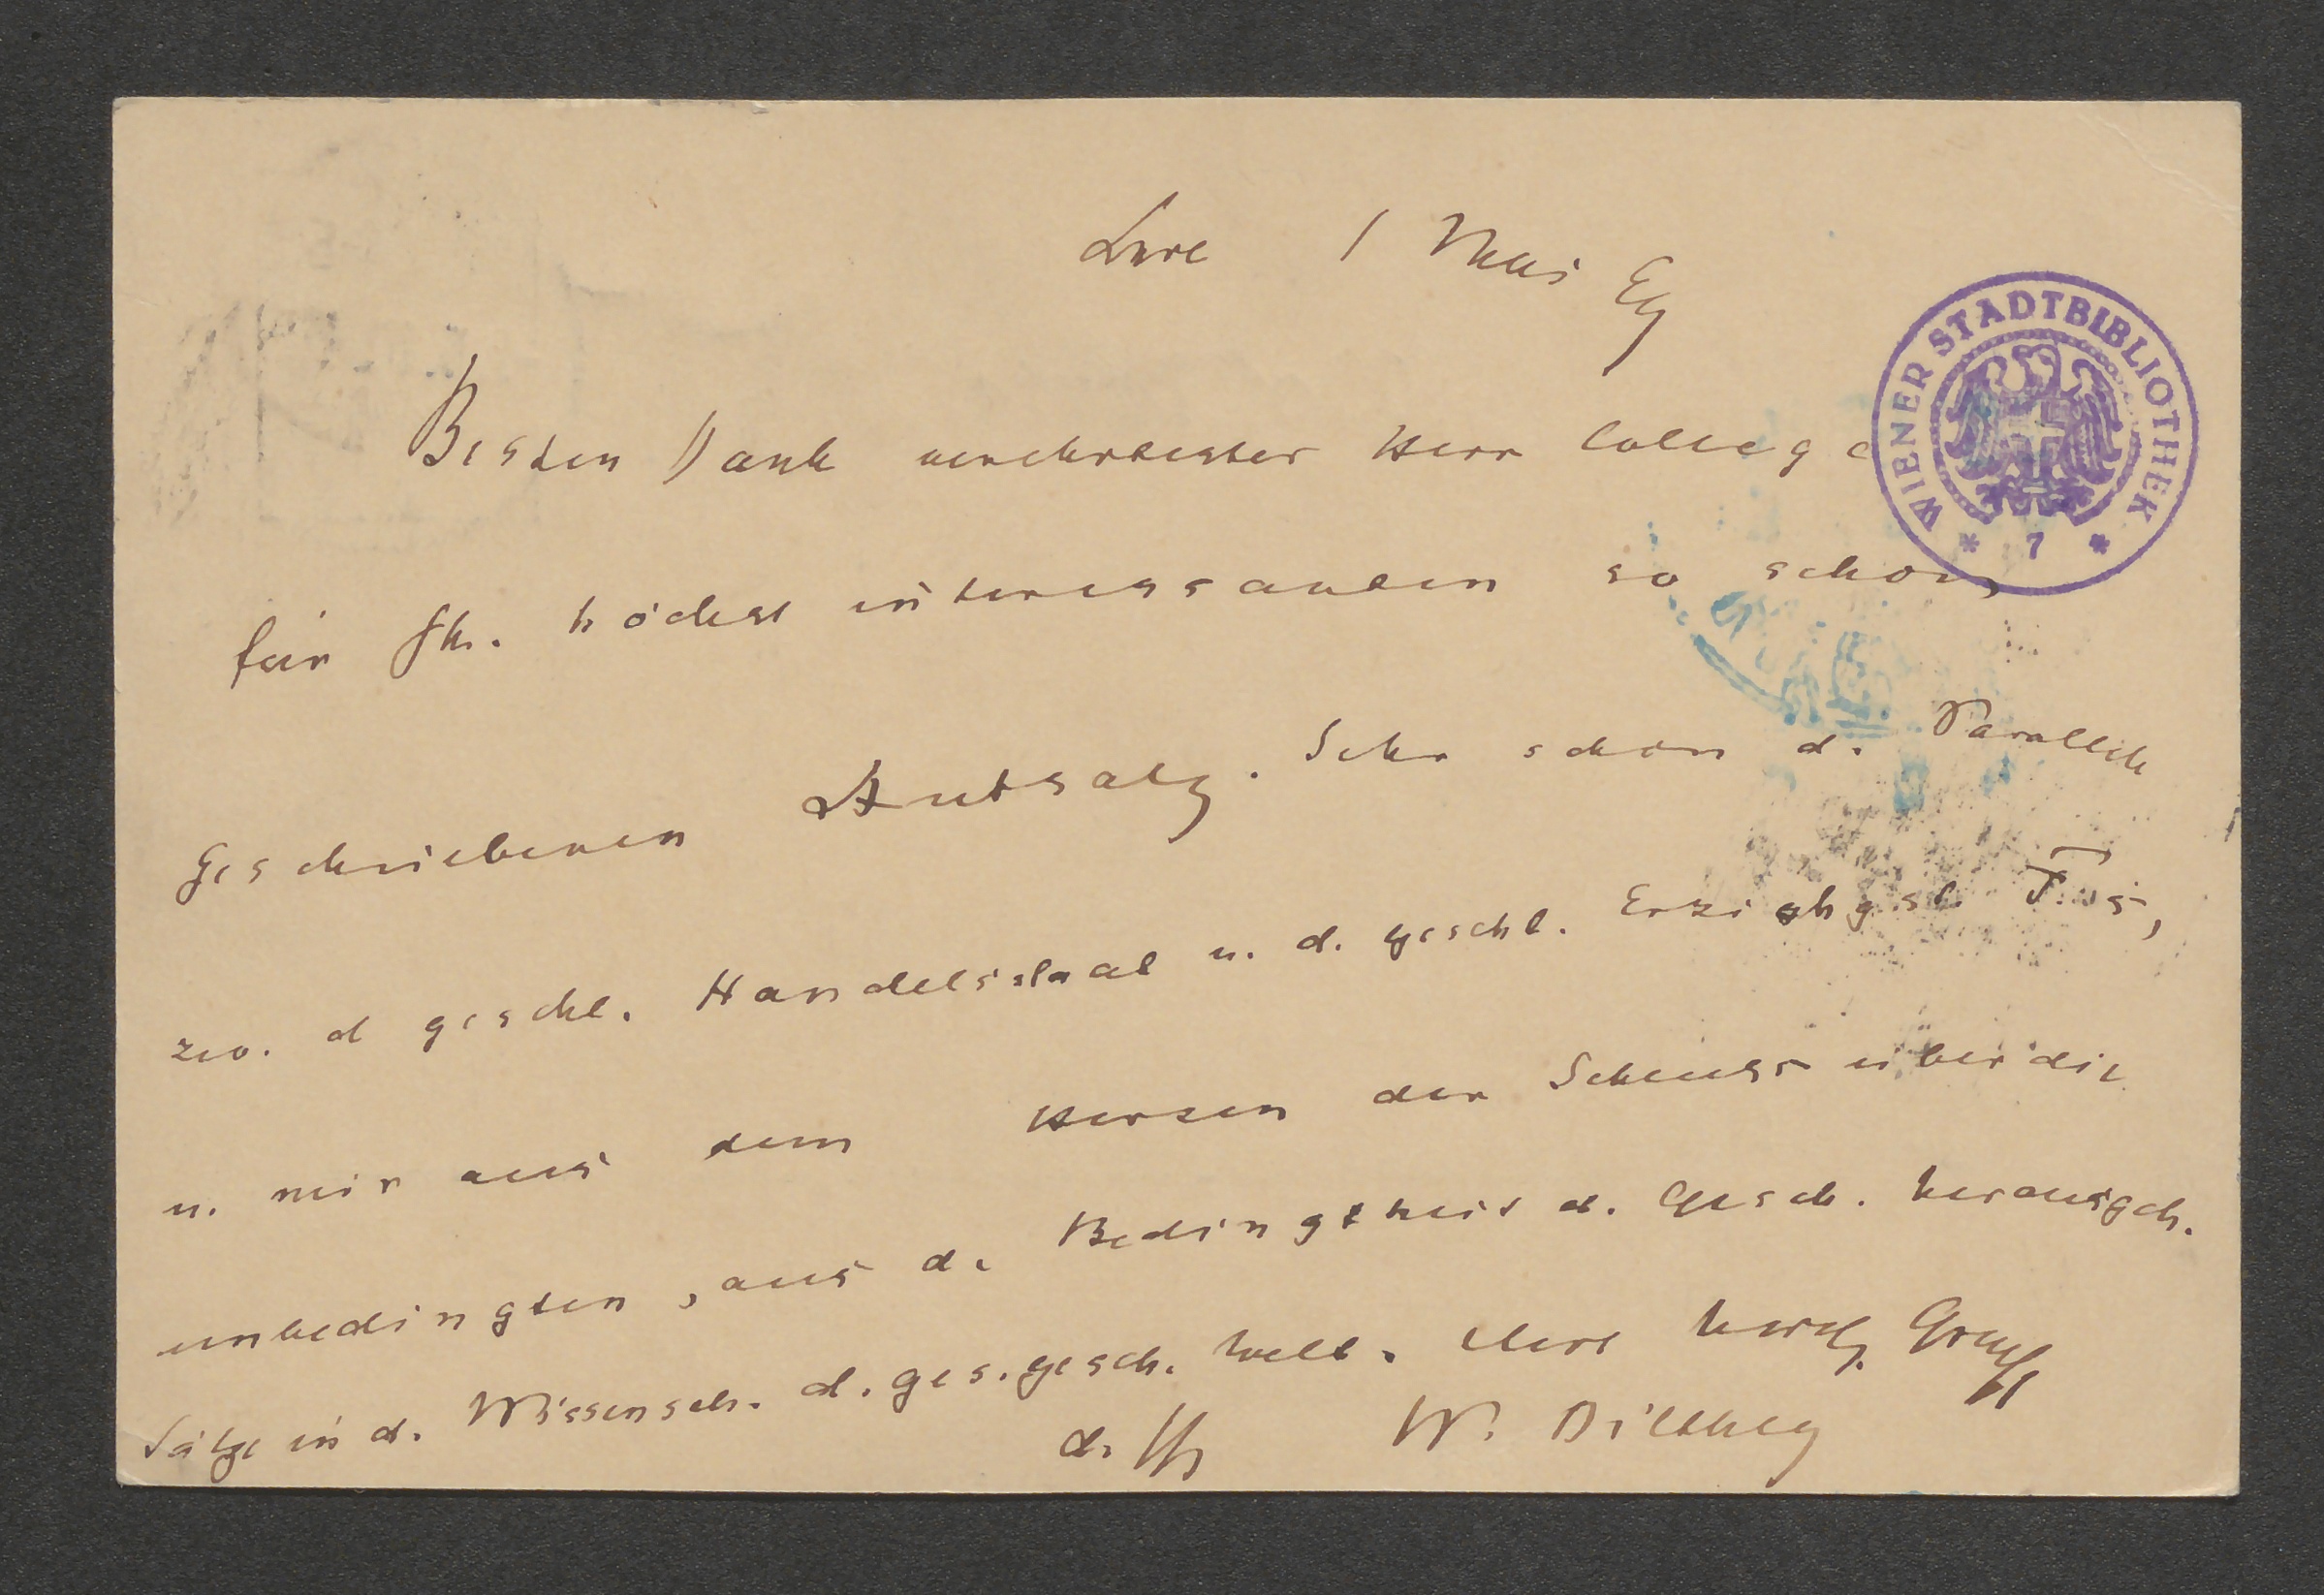 1 Mai
Besten Dank verehrtester Herr College
für Ihr. höchst interessanten so schön
geschriebenen Aufsatz. Sehr schön d. Parallele
zw. d geschl. Handelsstaat u. d. geschl. Erziehgsst.
u. mir aus dem Herzen der Schluss über die
unbedingten, aus d. Bedingtheit d. Gesch. herausgeh.
Sätze in d. Wissensch. d. ges. gesch. Welt. herzl. Gruß
d. Ih W. Dilthey
WIENER STADTBIBLIOTHEK
* 7 *